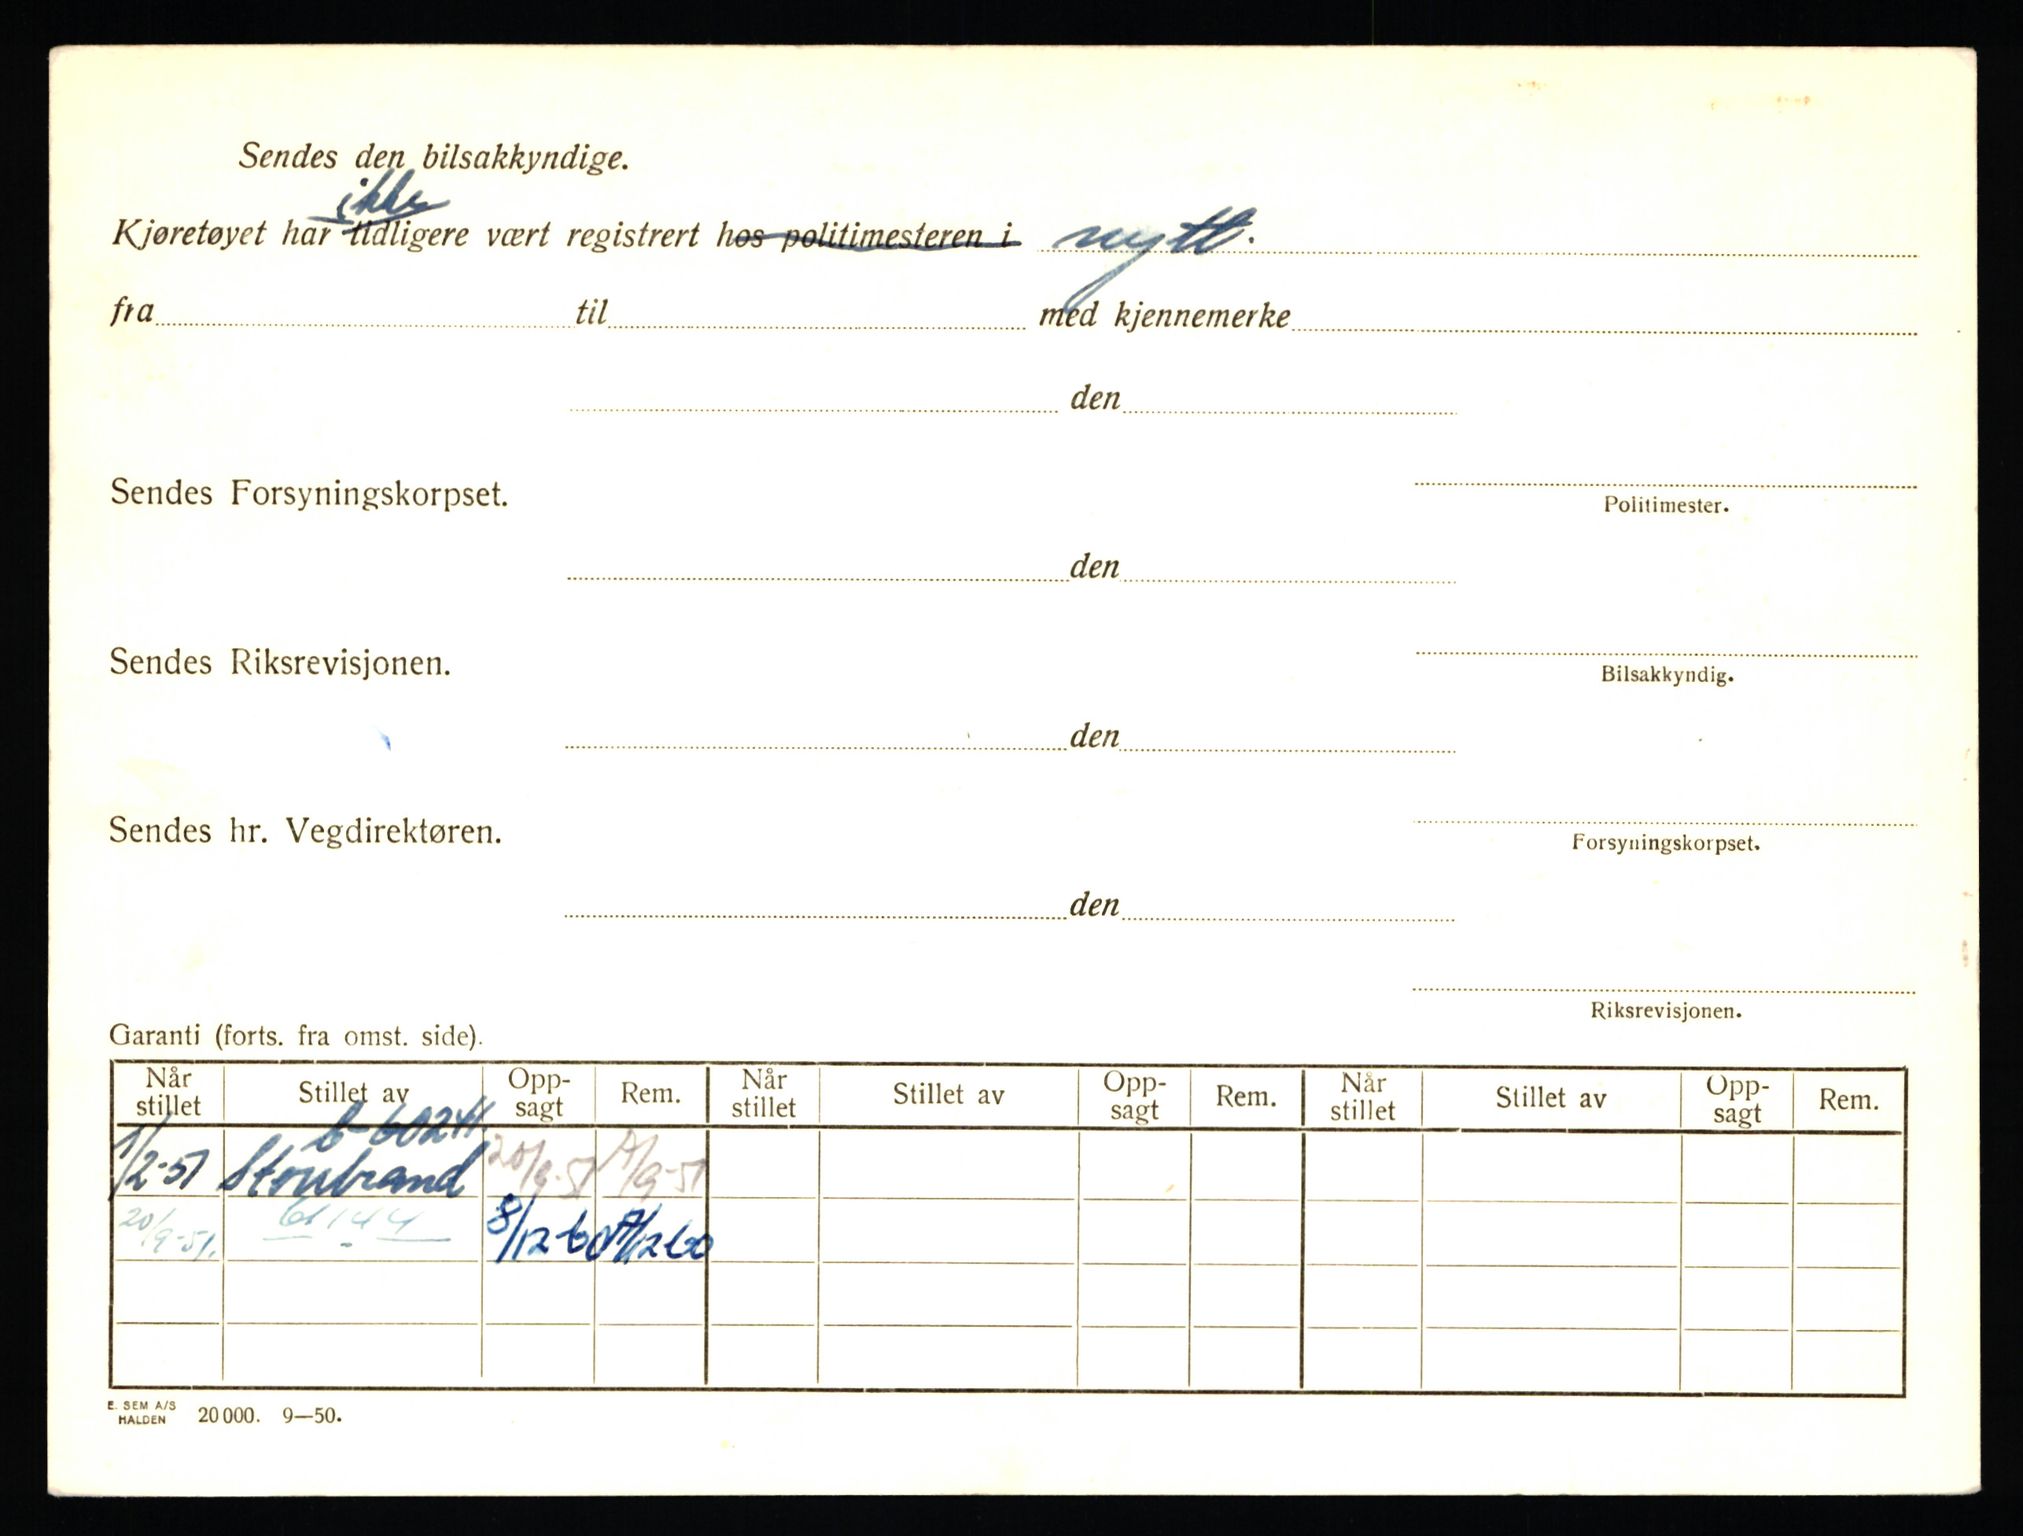 Sendes den bilsakkyndige.
ikke
Kjøretøyet har tidligere vært registrert hos politimesteren i nytt.
fra til med kjennemerke
den
Sendes Forsyningskorpset.
Politimester.
den
Sendes Riksrevisjonen.
Bilsakkyndig.
den
Sendes hr. Vegdirektøren.
Forsyningskorpset.
den
Riksrevisjonen.
Garanti (forts. fra omst. side).
Når stillet Stillet av Opp-sagt Rem. Når stillet Stillet av Opp-sagt Rem. Når stillet Stillet av Opp-sagt Rem.
1/2-51 Storebrand 20/9-51 /9-51
20/9-51. 61144 8/12-60 /12 60
E. SEM A/S
HALDEN 20 000. 9—50.